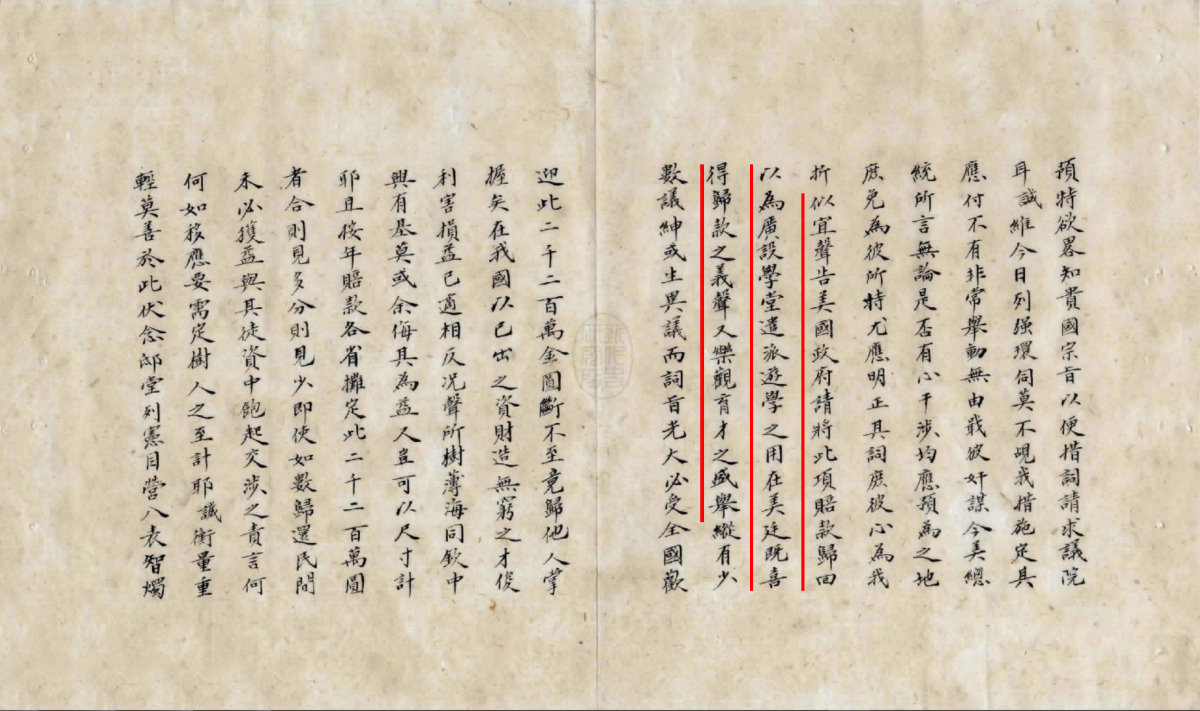 預特欲畧知貴國宗旨以便措詞請求議院
耳誠維今日列强環伺莫不覘我措施定其
應付不有非常舉動無由戢彼奸謀今美總
統所言無論是否有心干涉均應預為之地
庶免為彼所持尤應明正其詞庶彼心為我
折似宜聲告美國政府請將此項賠款歸回
以為廣設學堂遣派遊學之用在美廷既喜
得歸款之義聲又樂觀育才之盛舉縱有少
數議紳或生異議而詞旨光大必受全國歡
迎此二千二百萬金圓斷不至竟歸他人掌
握矣在我國以已出之資財造無窮之才俊
利害損益已適相反况聲所樹薄海同欽中
興有基莫或余侮其為益又豈可以尺寸計
耶且按年賠款各省攤定此二千二百萬圓
者合則見多分則見少即使如數歸還民間
未必獲益與其徒資中飽起交涉之責言何
何如移應要需定樹人之至計耶誠衡量重
輕莫善於此伏念邸堂列憲目營八表智燭